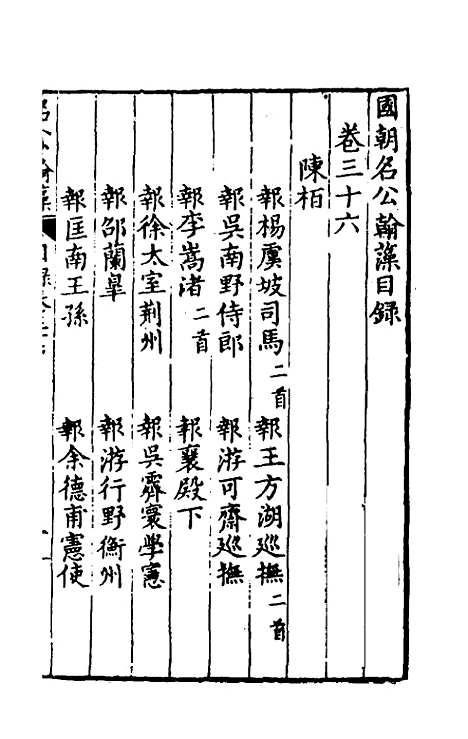 國朝名公翰藻目録
卷三十六
陳栢
報楊虞坡司馬二首
報王方湖巡撫二首
報吳南野侍郎
報游可齋巡撫
報李嵩渚二首
報襄殿下
報徐太室荆州
報吳霽寰學憲
報邵蘭臯
報游行野衡州
報匡南王孫
報余德甫憲使
名公翰藻
目録